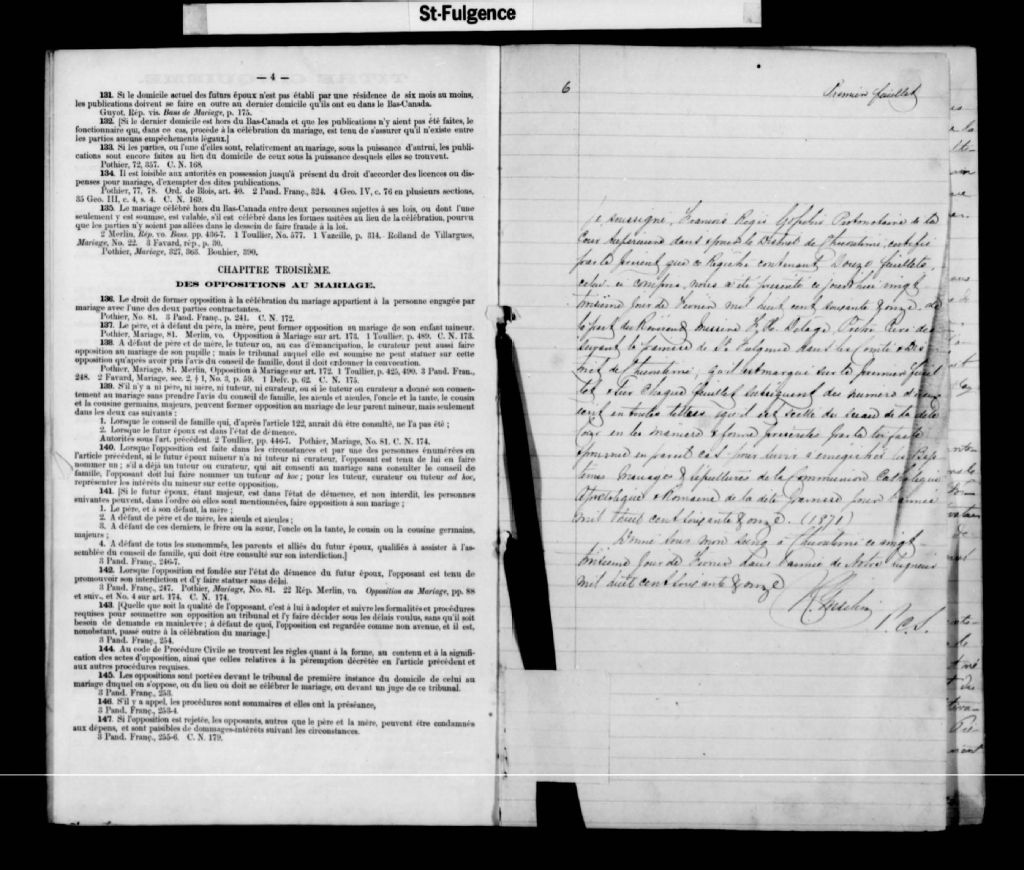 St-Fulgence
— 4 —
131. Si le domicile actuel des futurs époux n'est pas établi par une résidence de six mois au moins,
les publications doivent se faire en outre au dernier domicile qu'ils ont eu dans le Bas-Canada.
Guyot. Rép. vis. Bans de Mariage, p. 175.
132. [Si le dernier domicile est hors du Bas-Canada et que les publications n'y aient pas été faites, le
fonctionnaire qui, dans ce cas, procède à la célébration du mariage, est tenu de s'assurer qu'il n'existe entre
les parties aucuns empêchements légaux.]
133. Si les parties, ou l'une d'elles sont, relativement au mariage, sous la puissance d'autrui, les publi-
cations sont encore faites au lieu du domicile de ceux sous la puissance desquels elles se trouvent.
Pothier, 72, 357. C. N. 168.
134. Il est loisible aux autorités en possession jusqu'à présent du droit d'accorder des licences ou dis-
penses pour mariage, d'exempter des dites publications.
Pothier, 77, 78. Ord. de Blois, art. 40. 2 Pand. Franç., 324. 4 Geo. IV, c. 76 en plusieurs sections,
35 Geo. III, c. 4, s. 4. C. N. 169.
135. Le mariage célébré hors du Bas-Canada entre deux personnes sujettes à ses lois, ou dont l'une
seulement y est soumise, est valable, s'il est célébré dans les formes usitées au lieu de la célébration, pourvu
que les parties n'y soient pas allées dans le dessein de faire fraude à la loi.
2 Merlin, Rép. vo. Bans. pp. 436-7. 1 Toullier, No. 577. 1 Vazeille, p. 314. Rolland de Villargues,
Mariage, No. 22. 3 Favard, rép., p. 30.
Pothier, Mariage, 327, 363. Bouhier, 390.
CHAPITRE TROISIÈME.
DES OPPOSITIONS AU MARIAGE.
136. Le droit de former opposition à la célébration du mariage appartient à la personne engagée par
mariage avec l'une des deux parties contractantes.
Pothier, No. 81. 3 Pand. Franç., p. 241. C. N. 172.
137. Le père, et à défaut du père, la mère, peut former opposition au mariage de son enfant mineur.
Pothier, Mariage, 81. Merlin, vo. Opposition à Mariage sur art. 173. 1 Toullier, p. 489. C. N. 173.
138. A défaut de père et de mère, le tuteur ou, au cas d'émancipation, le curateur peut aussi faire
opposition au mariage de son pupille ; mais le tribunal auquel elle est soumise ne peut statuer sur cette
opposition qu'après avoir pris l'avis du conseil de famille, dont il doit ordonner la convocation.
Pothier, Mariage. 81. Merlin, Opposition à Mariage sur art. 172. 1 Toullier, p. 425, 490. 3 Pand. Fran.,
248. 2 Favard, Mariage, sec. 2, § 1, No. 3, p. 59. 1 Delv. p. 62. C. N. 175.
139. S'il n'y a ni père, ni mère, ni tuteur, ni curateur, ou si le tuteur ou curateur a donné son consen-
tement au mariage sans prendre l'avis du conseil de famille, les aïeuls et aïeules, l'oncle et la tante, le cousin
et la cousine germains, majeurs, peuvent former opposition au mariage de leur parent mineur, mais seulement
dans les deux cas suivants :
1. Lorsque le conseil de famille qui, d'après l'article 122, aurait dû être consulté, ne l'a pas été ;
2. Lorsque le futur époux est dans l'état de démence.
Autorités sous l'art. précédent. 2 Toullier, pp. 446-7. Pothier, Mariage, No. 81. C. N. 174.
140. Lorsque l'opposition est faite dans les circonstances et par une des personnes énumérées en
l'article précédent, si le futur époux mineur n'a ni tuteur ni curateur, l'opposant est tenu de lui en faire
nommer un ; s'il a déjà un tuteur ou curateur, qui ait consenti au mariage sans consulter le conseil de
famille, l'opposant doit lui faire nommer un tuteur ad hoc ; pour les tuteur, curateur ou tuteur ad hoc,
représenter les intérêts du mineur sur cette opposition.
141. [Si le futur époux, étant majeur, est dans l'état de démence, et non interdit, les personnes
suivantes peuvent, dans l'ordre où elles sont mentionnées, faire opposition à son mariage ;
1. Le père, et à son défaut, la mère ;
2. A défaut de père et de mère, les aïeuls et aïeules ;
3. A défaut de ces derniers, le frère ou la sœur, l'oncle ou la tante, le cousin ou la cousine germains,
majeurs ;
4. A défaut de tous les susnommés, les parents et alliés du futur époux, qualifiés à assister à l'as-
semblée du conseil de famille, qui doit être consulté sur son interdiction.]
3 Pand. Franç., 246-7.
142. Lorsque l'opposition est fondée sur l'état de démence du futur époux, l'opposant est tenu de
promouvoir son interdiction et d'y faire statuer sans délai.
3 Pand. Franç., 247. Pothier, Mariage, No. 81. 22 Rép. Merlin, vo. Opposition au Mariage, pp. 88
et suiv., et No. 4 sur art. 174. C. N. 174.
143. [Quelque que soit la qualité de l'opposant, c'est à lui à adopter et suivre les formalités et procédures
requises pour soumettre son opposition au tribunal et l'y faire décider sous les délais voulus, sans qu'il soit
besoin de demande en mainlevée ; à défaut de quoi, l'opposition est regardée comme non avenue, et il est,
nonobstant, passé outre à la célébration du mariage.]
3 Pand. Franç., 254.
144. Au code de Procédure Civile se trouvent les règles quant à la forme, au contenu et à la signifi-
cation des actes d'opposition, ainsi que celles relatives à la péremption décrétée en l'article précédent et
aux autres procédures requises.
145. Les oppositions sont portées devant le tribunal de première instance du domicile de celui au
mariage duquel on s'oppose, ou du lieu où doit se célébrer le mariage, ou devant un juge de ce tribunal.
3 Pand. Franç., 253.
146. S'il y a appel, les procédures sont sommaires et elles ont la préséance,
3 Pand. Franç., 253-4.
147. Si l'opposition est rejetée, les opposants, autres que le père et la mère, peuvent être condamnés
aux dépens, et sont paisibles de dommages-intérêts suivant les circonstances.
3 Pand. Franç., 255-6. C. N. 179.
6
Premier feuillet
Je soussigné, François Régis Gosselin Protonotaire de la
Cour Supérieure dans & pour le District de Chicoutimi, certifie
par le présent que ce Registre contenant Douze feuillets,
celui-ci compris, nous a été présenté ce jourd'hui vingt
troisième jour de Février mil huit cent soixante & onze, de
la part du Révérend Messire Delage Prêtre Curé des-
servant la Paroisse de St. Fulgence dans les Comté & Dis-
trict de Chicoutimi, qu'il est marqué sur le premier feuil-
let & sur chaque feuillet subséquent du numéro d'iceux
écrit en toutes lettres, qu'il est scellé du sceau de la dite
Cour en la manière & forme présentés par la loi faite
& pourvue en pareil cas pour servir à enregistrer les Bap-
têmes Mariages & Sépultures de la Communion Catholique
Apostolique & Romaine de la dite Paroisse pour l'année
mil huit cent soixante & onze. (1871)
Donné sous mon seing à Chicoutimi ce vingt
troisième jour de Février dans l'année de Notre Seigneur
mil huit cent soixante & onze
Gosselin
P.C.S.